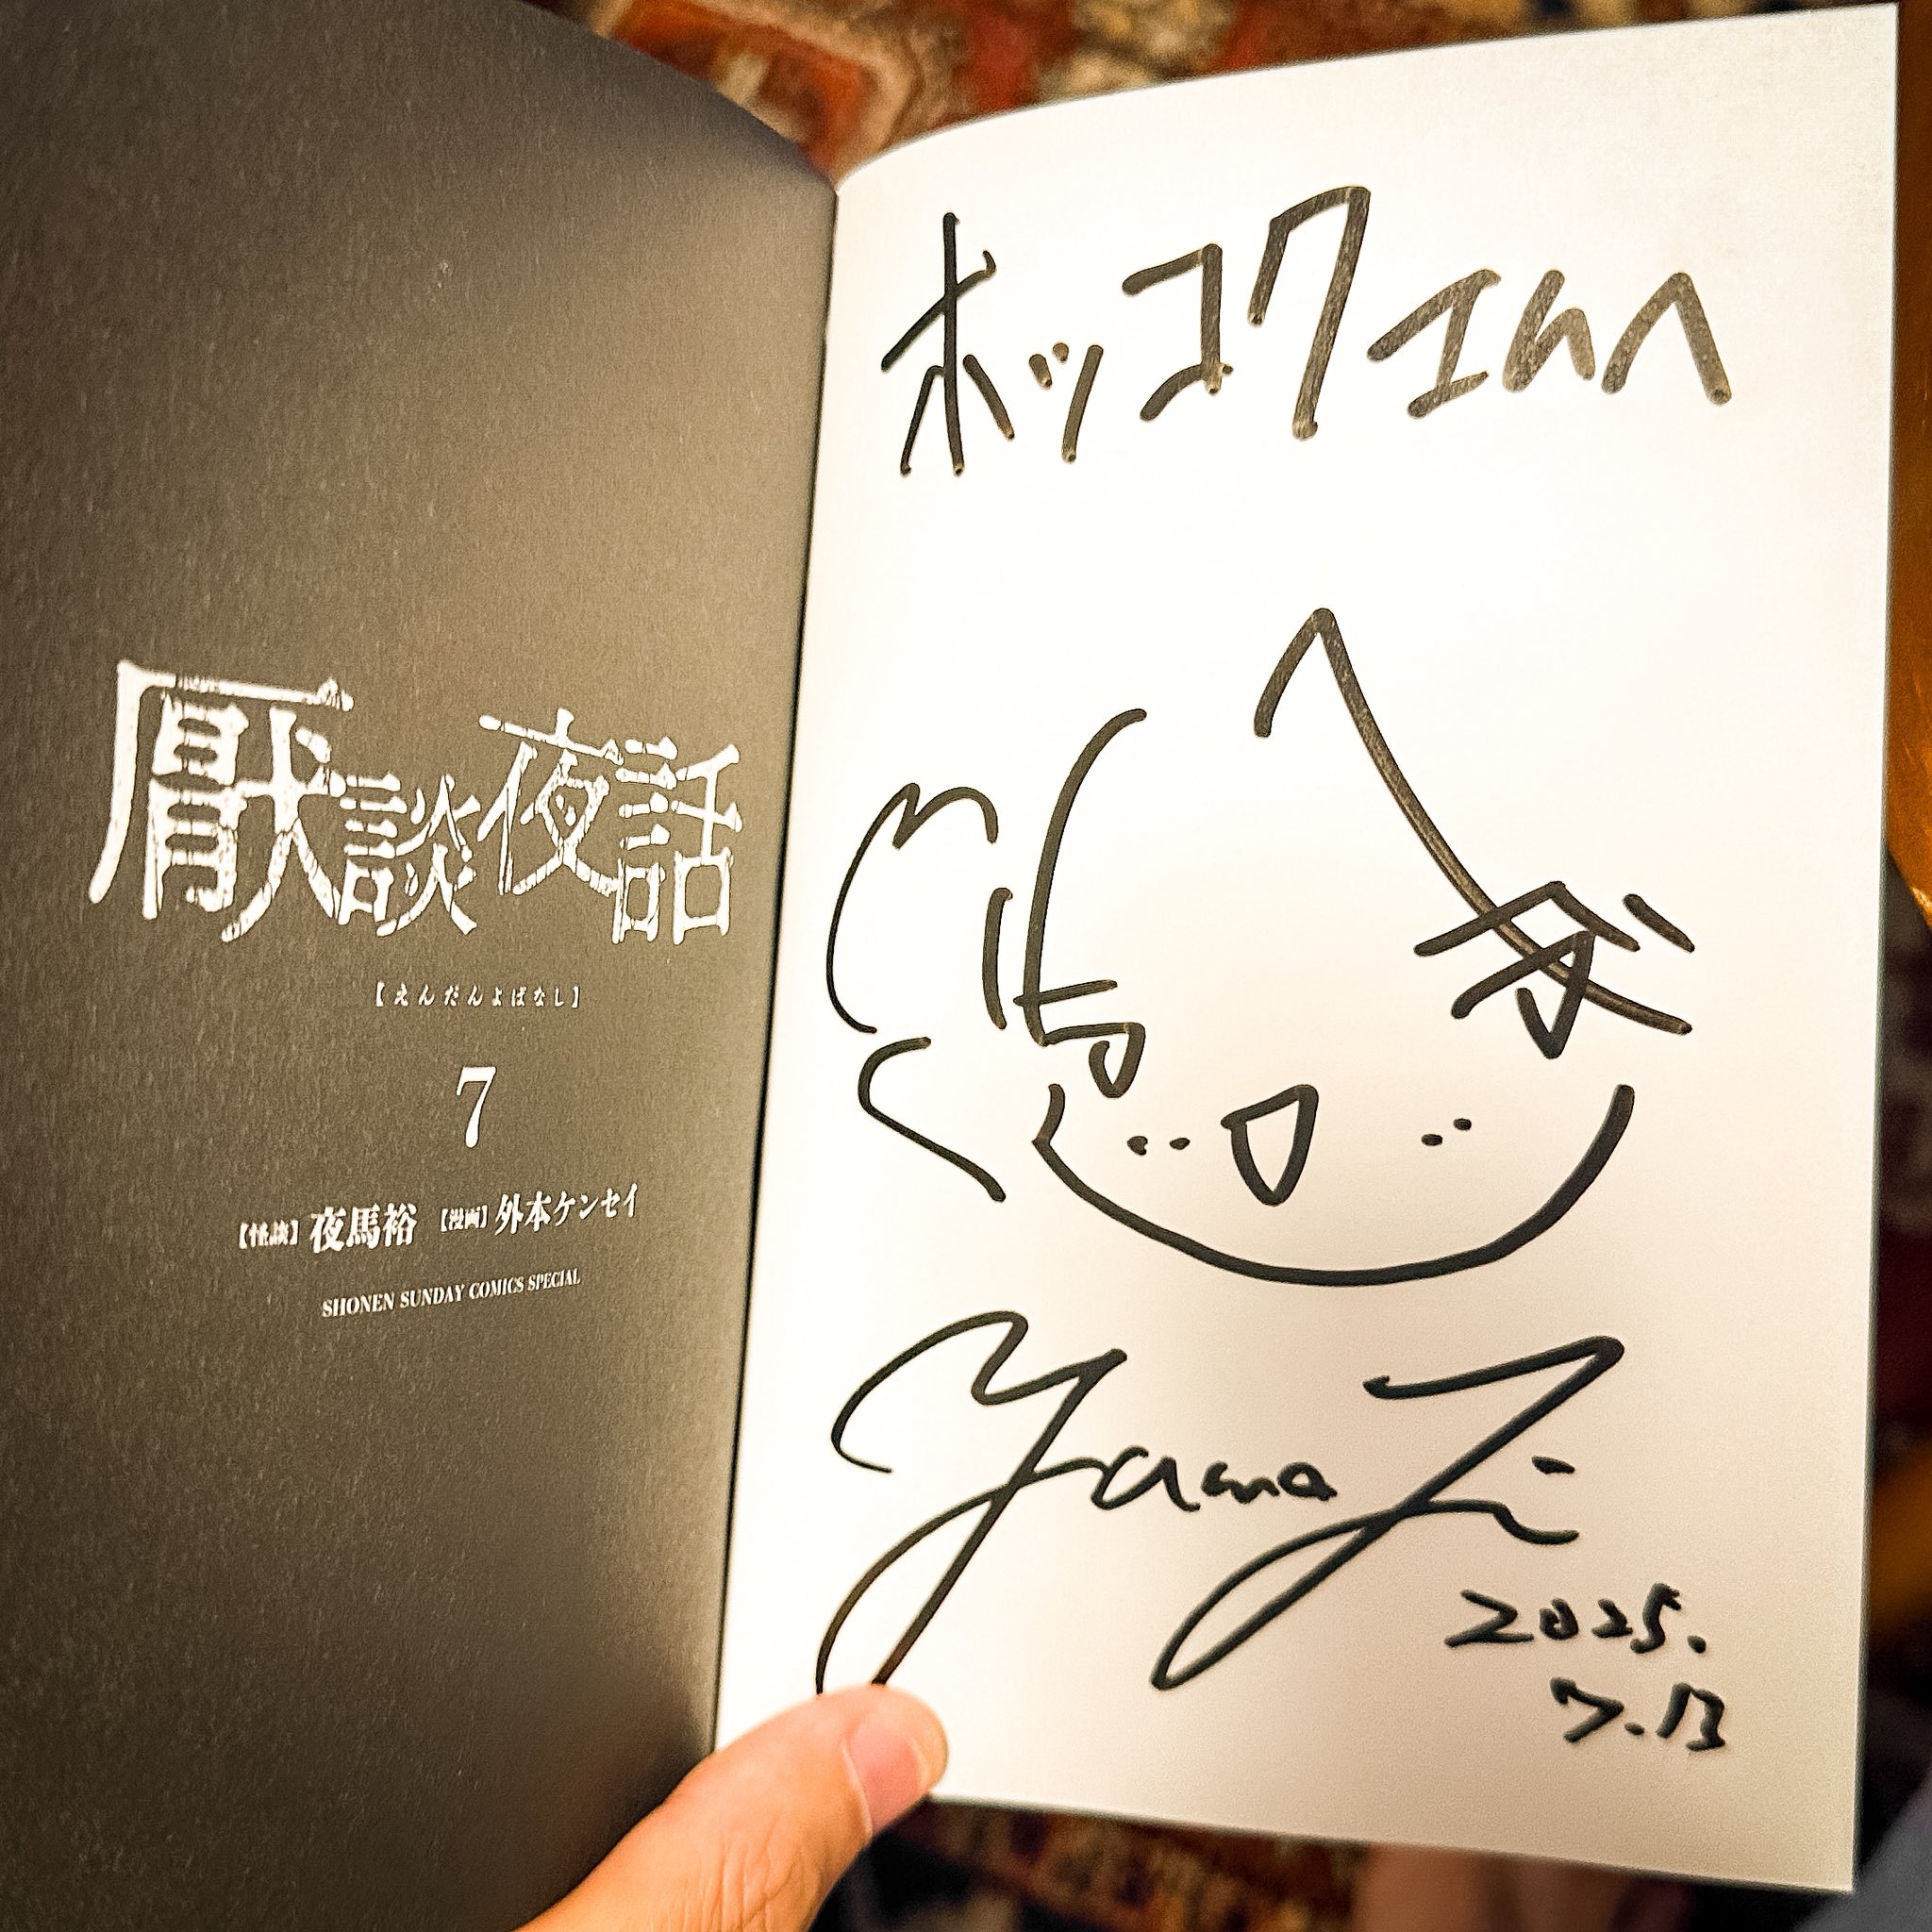 厭談夜話
【えんだんよばなし】
7
【怪談】夜馬裕 【漫画】外本ケンセイ
SHONEN SUNDAY COMICS SPECIAL
ホッコク
2025.
7.13